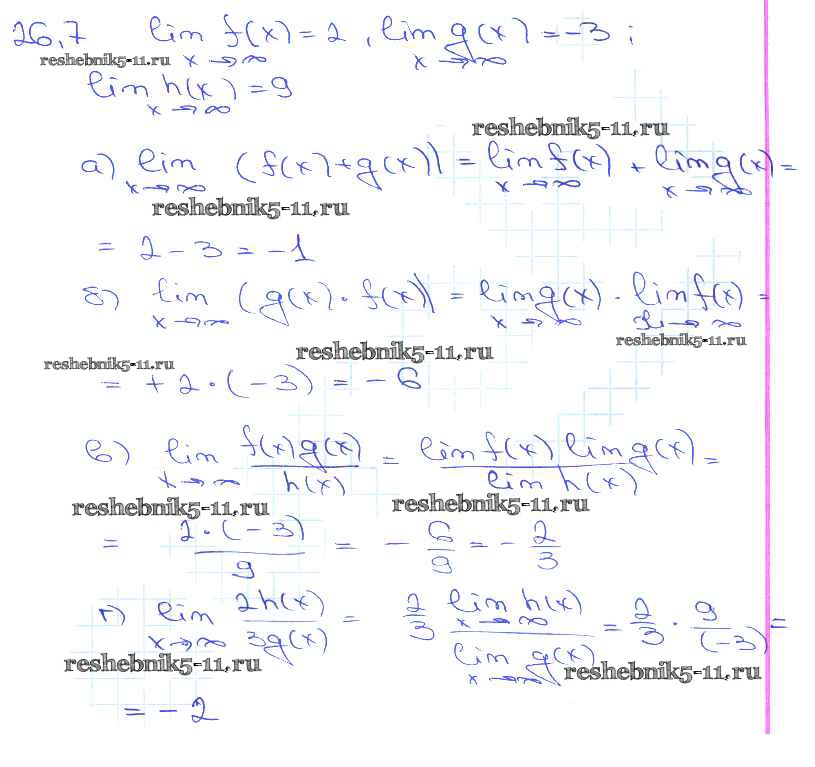 26,7 lim f(x) = 2 , lim g(x) = -3 ;
reshebnik5-11.ru x→∞ x→∞
lim h(x) = 9
x→∞
reshebnik5-11.ru
а) lim (f(x)+g(x)) = lim f(x) + lim g(x) =
x→∞ x→∞ x→∞
reshebnik5-11.ru
= 2 - 3 = -1
б) lim (g(x)·f(x)) = lim g(x) · lim f(x) =
x→∞ x→∞ x→∞
reshebnik5-11.ru
reshebnik5-11.ru
reshebnik5-11.ru
= +2·(-3) = -6
в) lim f(x)g(x)/h(x) = lim f(x) lim g(x)/lim h(x) =
x→∞
reshebnik5-11.ru reshebnik5-11.ru
= 2·(-3)/9 = -6/9 = -2/3
г) lim 2h(x)/3g(x) = 2/3 lim h(x)/lim g(x) = 2/3 · 9/(-3) =
x→∞ x→∞ x→∞
reshebnik5-11.ru reshebnik5-11.ru
= -2